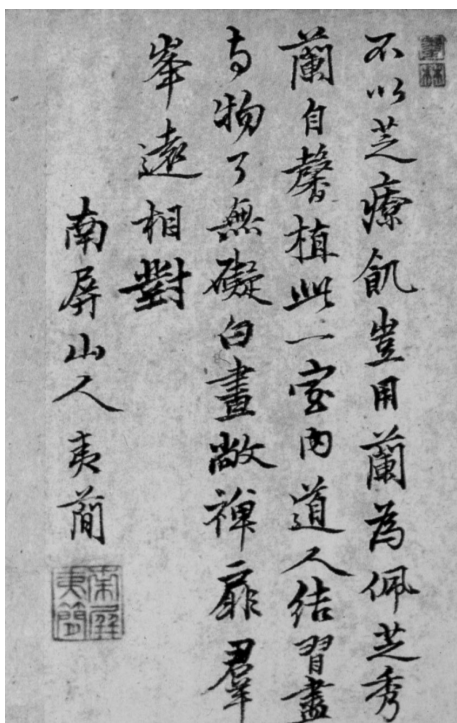 不以芝療飢豈用蘭為佩芝秀
蘭自馨植此一室內道人結習盡
与物了無礙白晝敞禅扉羣
峯遠相對
南屏山人夷蕳
南屏
夷簡